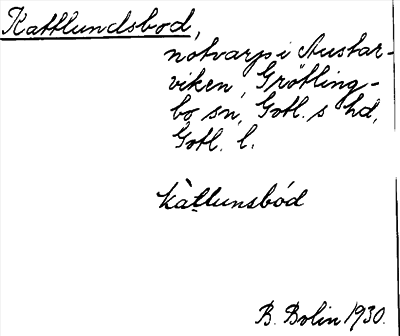 Kattlundsbod,
notvarp i Austar-
viken, Grötling-
bo sn, Gotl. s hd,
Gotl. l.
kàt̲lunsbód
B. Bolin 1930.